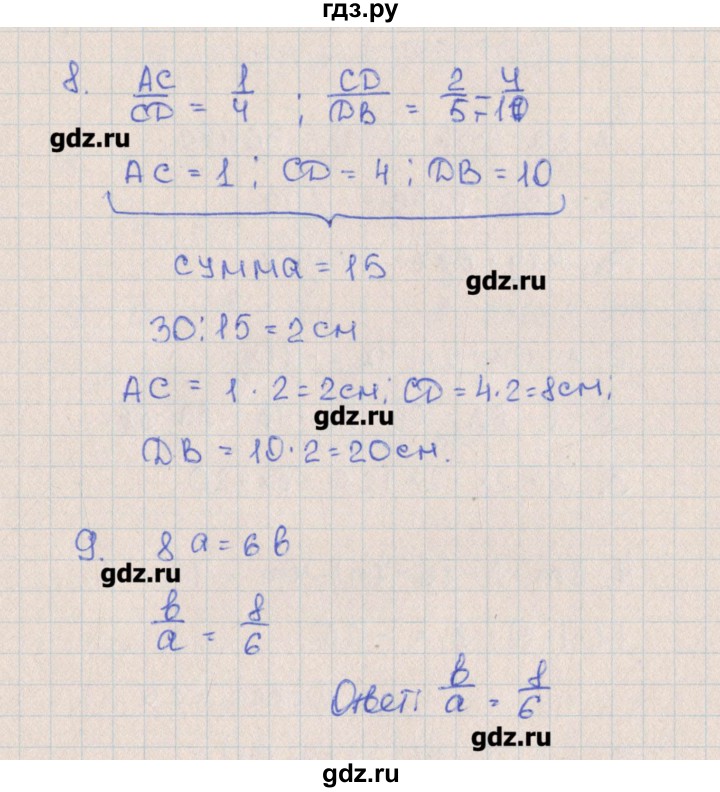 гдз.ру
8. AC/CD = 1/4 ; CD/DB = 2/5 = 4/10
gdz.ru
AC = 1 ; CD = 4 ; DB = 10
сумма = 15
gdz.ru
30 : 15 = 2 см
AC = 1 · 2 = 2 см; CD = 4 · 2 = 8 см;
gdz.ru
DB = 10 · 2 = 20 см.
9. 8 a = 6 b
gdz.ru
b/a = 8/6
Ответ: b/a = 8/6
gdz.ru
gdz.ru